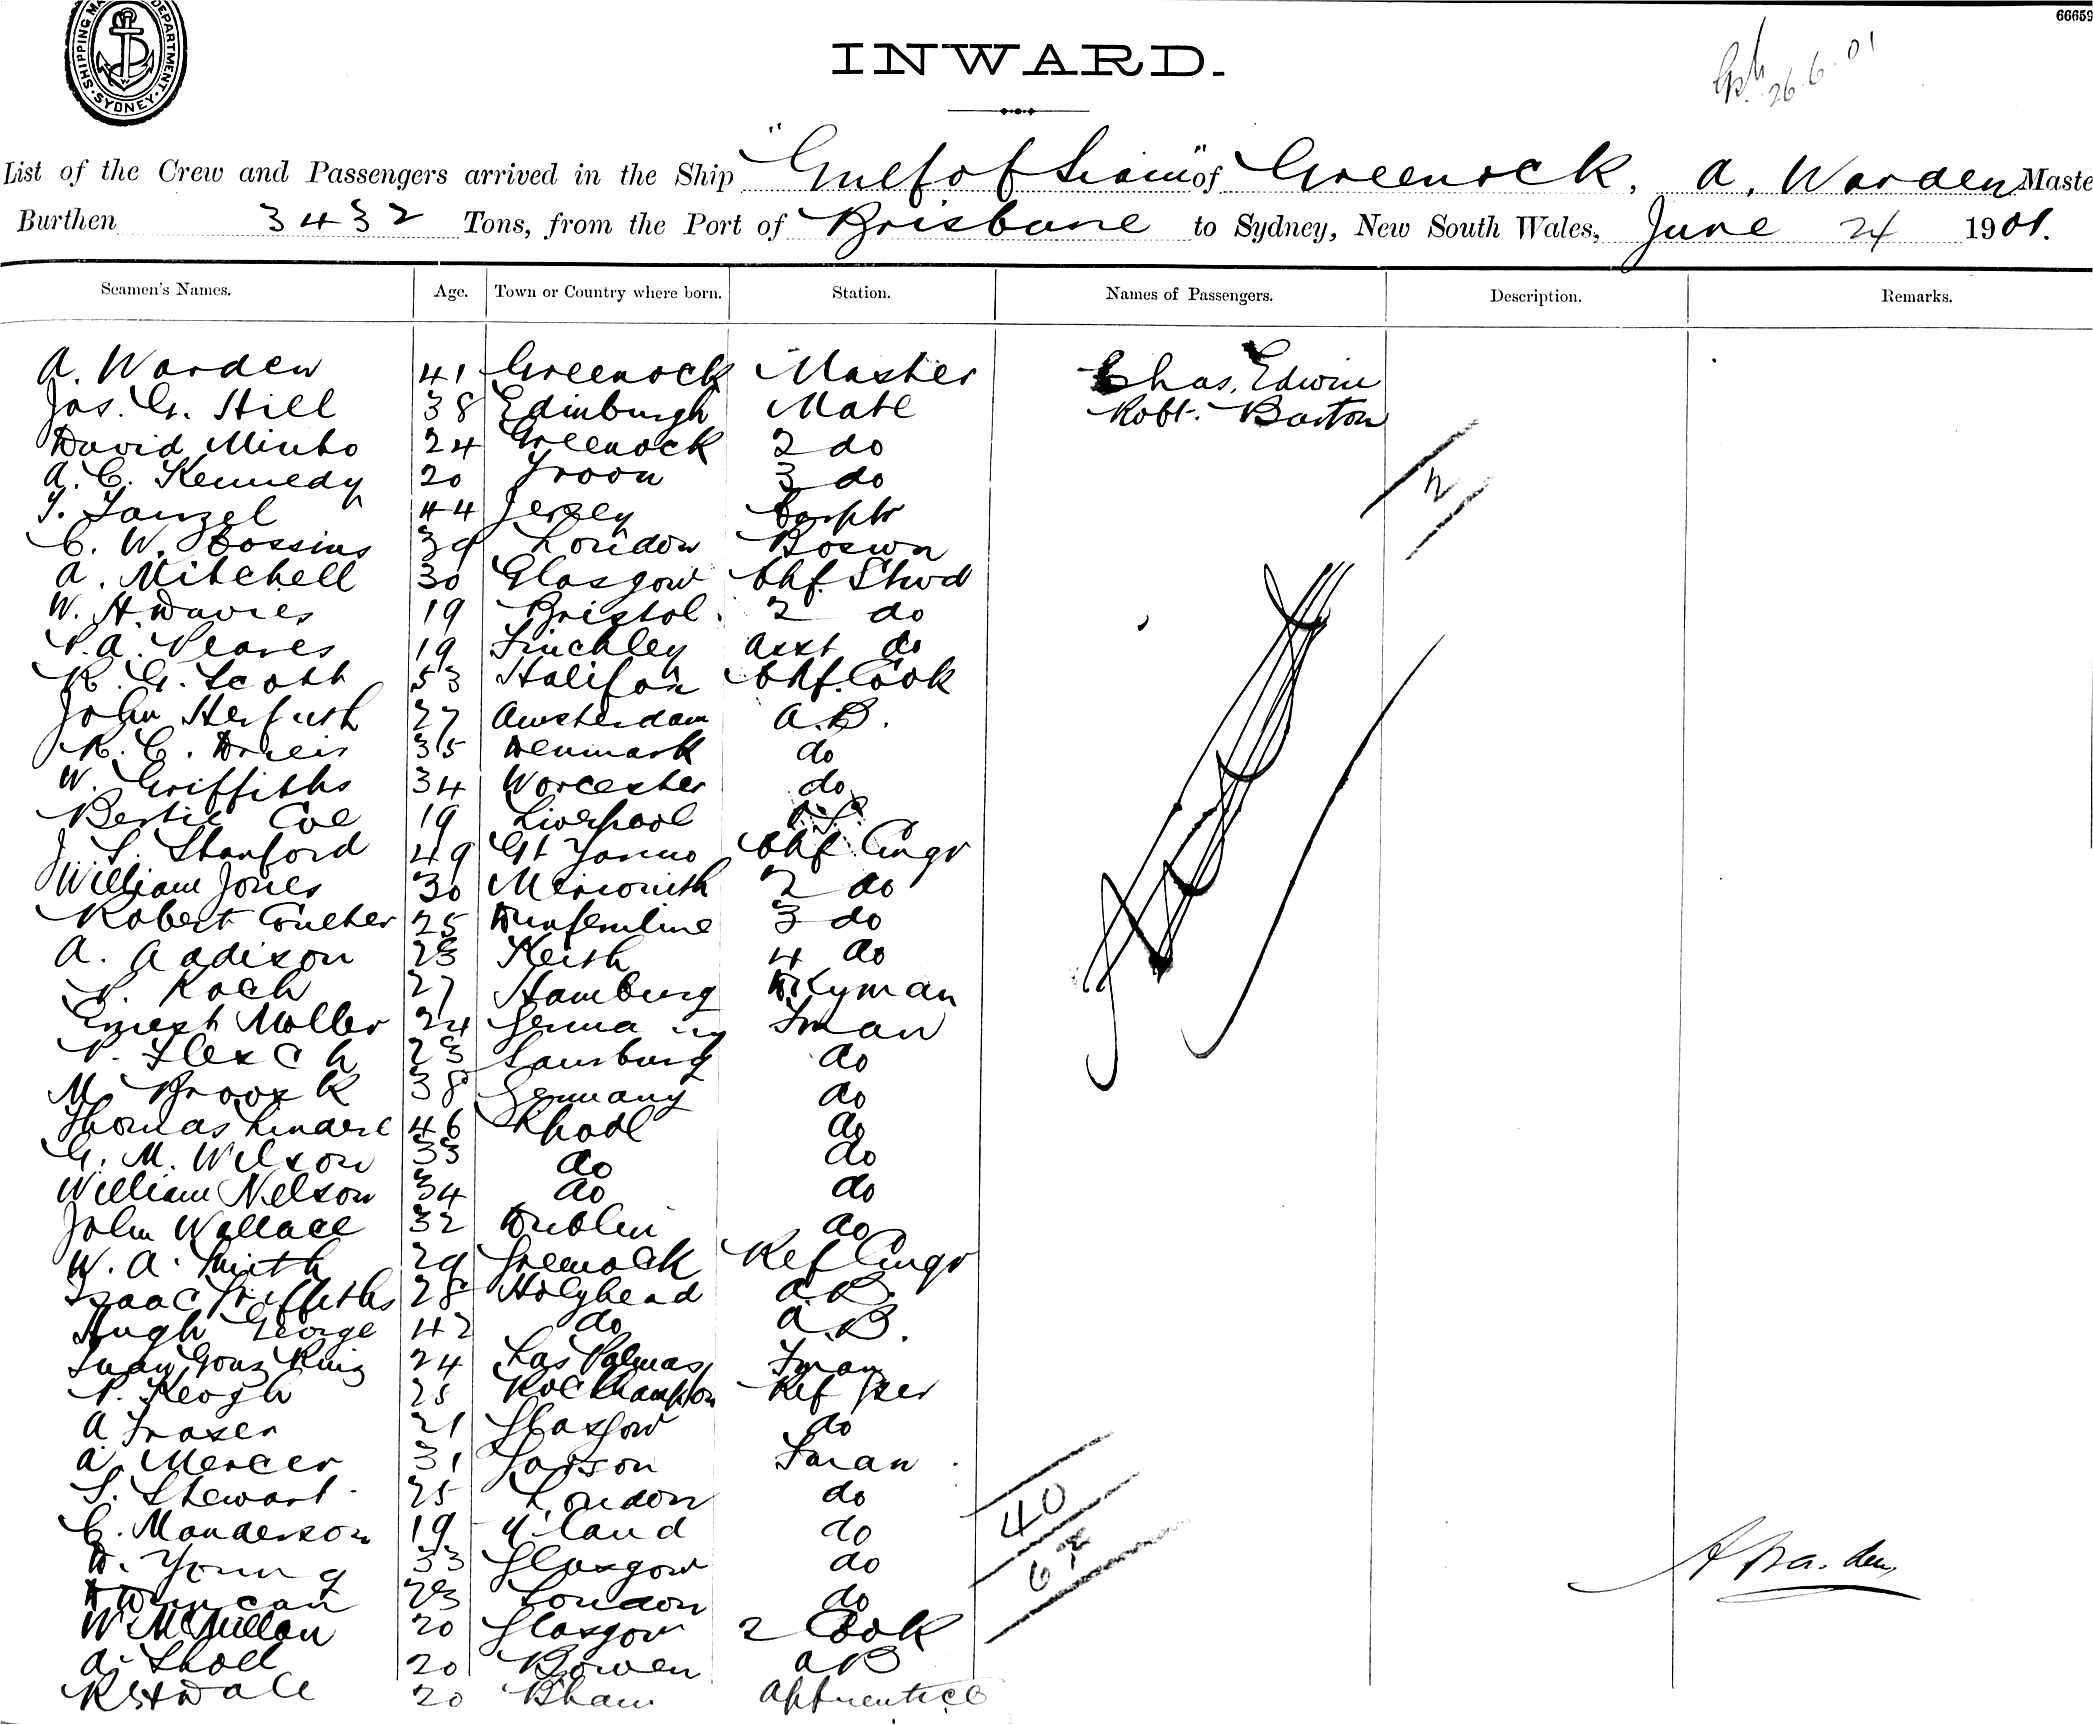 SHIPPING MA DEPARTMENT SYDNEY
66659
INWARD.
26.6.01
List of the Crew and Passengers arrived in the Ship "Gulf of Siam" of Greenock, A. Warden Maste
Burthen 3432 Tons, from the Port of Brisbane to Sydney, New South Wales, June 24 1901.
Seamen's Names. Age. Town or Country where born. Station. Names of Passengers. Description. Remarks.
A. Warden 41 Greenock Master Chas. Edwin
Jas. G. Hill 38 Edinburgh Mate Robt. Barton
David Minto 24 Greenock 2 do
A. C. Kennedy 20 Troon 3 do
44 Jersey Carptr
C. W. Cossins 39 London Boswn
A. Mitchell 30 Glasgow Chf. Stwd
W. H. Davies 19 Bristol. 2 do
P. A. Peaves 19 Finchley Asst do
R. G. Scott 53 Halifax Chf. Cook
John Herfurth 27 Amsterdam A.B.
R. C. 35 Denmark do
W. Griffiths 34 Worcester do
Bertie Coe 19 Liverpool
J. S. Stanford 49 Gt Chf Eingr
William Jones 30 2 do
Robert Coulter 25 Dunfemline 3 do
A. Addison 23 Keith 4 do
P. Koch 27 Hamburg Dkyman
Ernest Moller 24 Germany Fman
P. Flesch 23 do
M. 38 Germany do
Thomas 46 do
G. M. Wilson 33 do do
William Nelson 34 do do
John Wallace 32 Dublin do
W. A. Smith 29 Greenock Ref Eingr
Isaac Griffiths 28 Holyhead A.B.
Hugh George 42 do A.B.
Juan Gonz Ruiz 24 Las Palmas Fman
P. Keogh 25 Rockhampton Ref
A Fraser 21 Glasgow do
A. Mercer 31 Fman
S. Stewart 25 London do
C. Manderson 19 Q'land do
D. Young 33 Glasgow do
Duncan 23 London do
W. McMillan 20 Glasgow 2 Cook
A. Sholl 20 Bowen AB
20 Bham Apprentice
2
40
A Warden